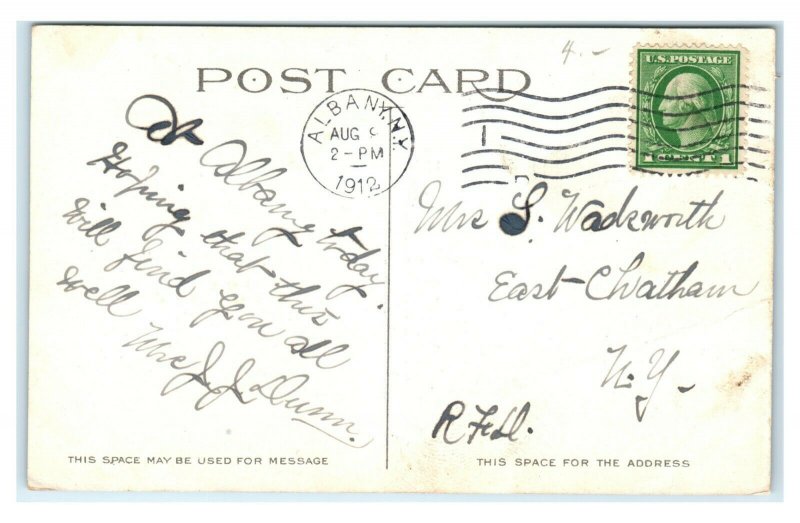 4.-
POST CARD
U.S. POSTAGE
1 CENT 1
ALBANY, N.Y.
AUG
2-PM
1912
At Albany today.
Hoping that this
will find you all
well Mrs J. J. Dunn.
Mrs S. Wadsworth
East-Chatham
N.Y.
R.F.D.
THIS SPACE MAY BE USED FOR MESSAGE
THIS SPACE FOR THE ADDRESS